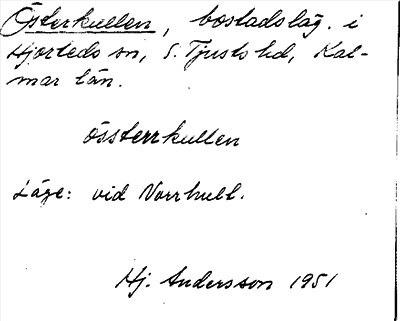 Österkullen, bostadsläg. i
Hjorteds sn, S. Tjusts hd, Kal-
mar län.
össterrkullen
Läge: vid Norrhult.
Hj. Andersson 1951